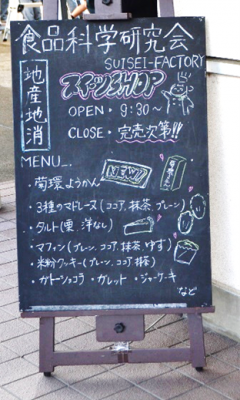 食品科学研究会
SUISEI-FACTORY
地産地消
スイーツSHOP
OPEN・9:30～
CLOSE・完売次第!!
MENU...
NEW!
・菊環ようかん
・3種のマドレーヌ(ココア、抹茶、プレーン)
・タルト(栗、洋なし)
・マフィン(プレーン、ココア、抹茶、ゆず)
・米粉クッキー(プレーン、ココア、抹茶)
・ガトーショコラ・ガレット・ジャーケーキ
など